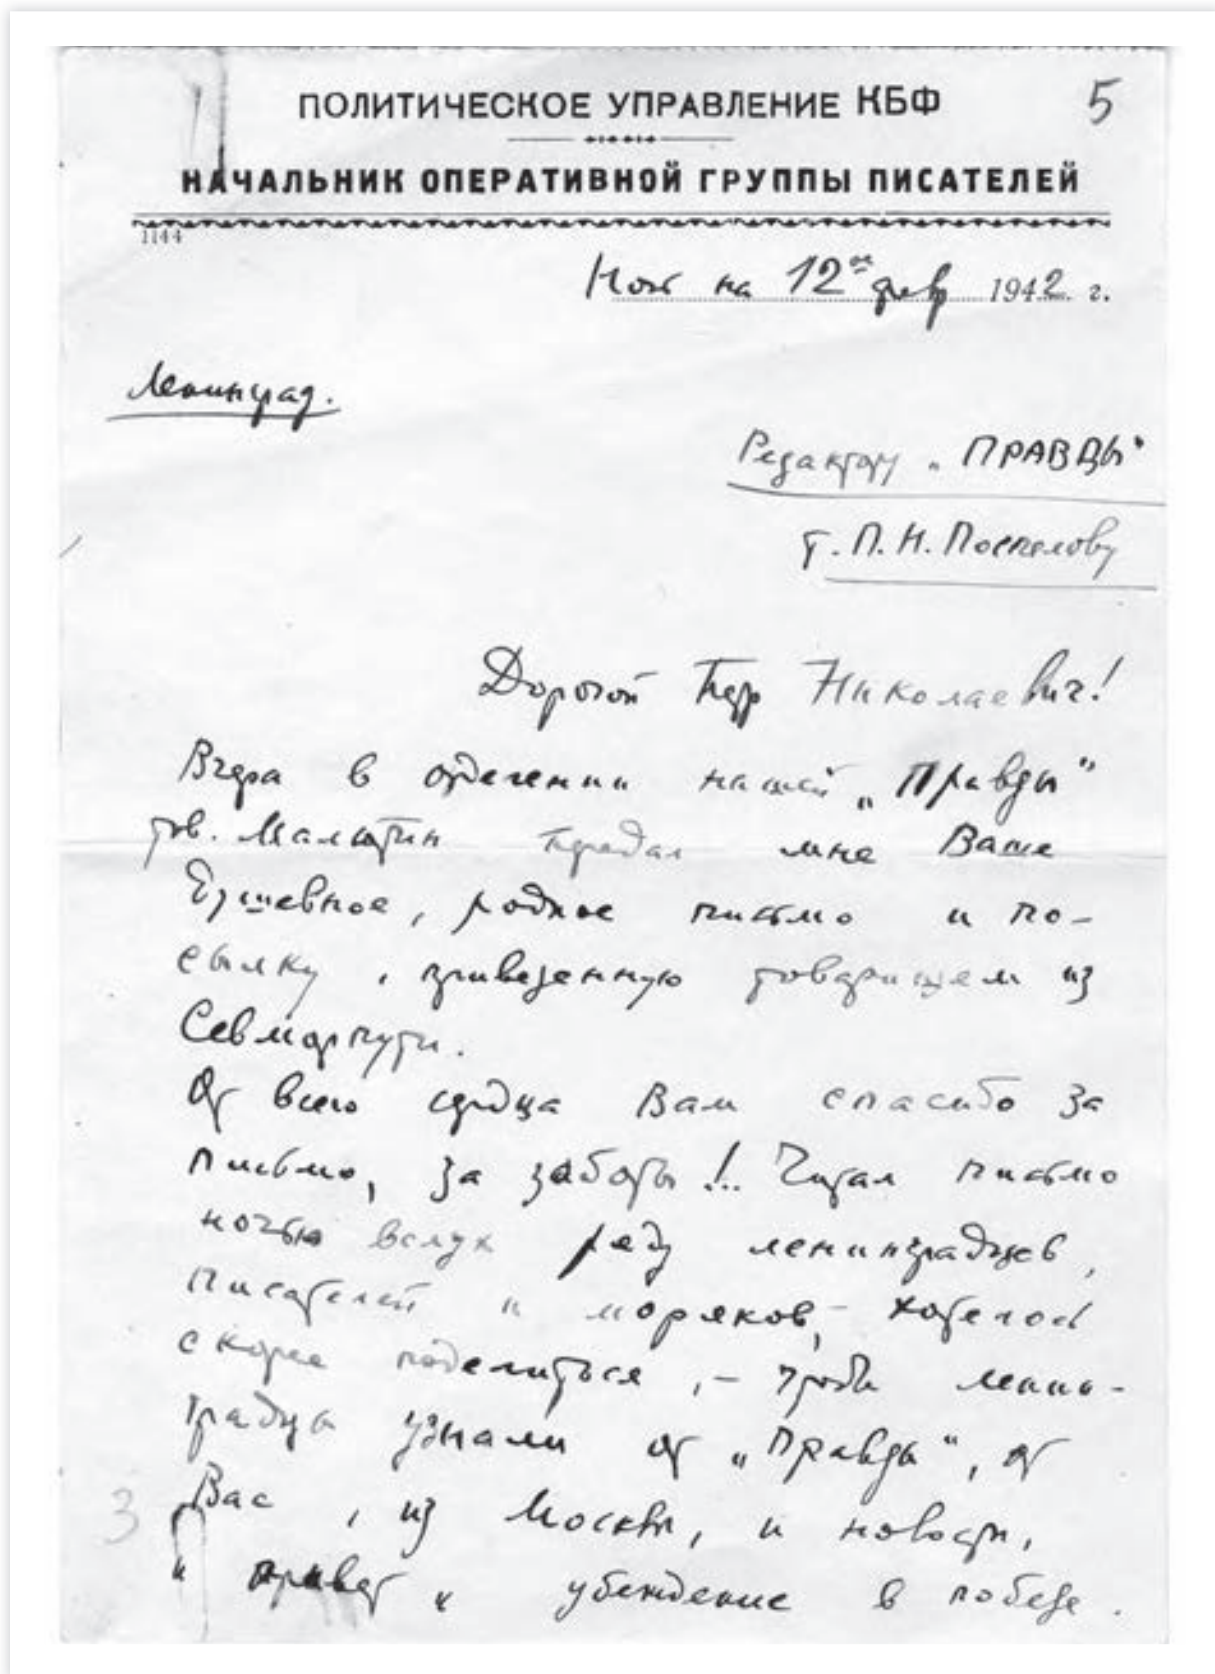 ПОЛИТИЧЕСКОЕ УПРАВЛЕНИЕ КБФ
5
НАЧАЛЬНИК ОПЕРАТИВНОЙ ГРУППЫ ПИСАТЕЛЕЙ
1144
Ночь на 12ое февр 1942 г.
Ленинград.
Редактору „ПРАВДЫ“
т. П. Н. Поспелову
Дорогой Петр Николаевич!
Вчера в отделении нашей „Правды“
тов. Малютин передал мне Ваше
душевное, родное письмо и по-
сылку, привезенную товарищем из
Севморпути.
От всего сердца Вам спасибо за
письмо, за заботы!.. Читал письмо
ночью вслух ряду ленинградцев,
писателей и моряков, – хотелось
скорее поделиться, – чтобы ленин-
градцы узнали от „Правды“, от
Вас, из Москвы, и новости,
и привет и убеждение в победе.
3